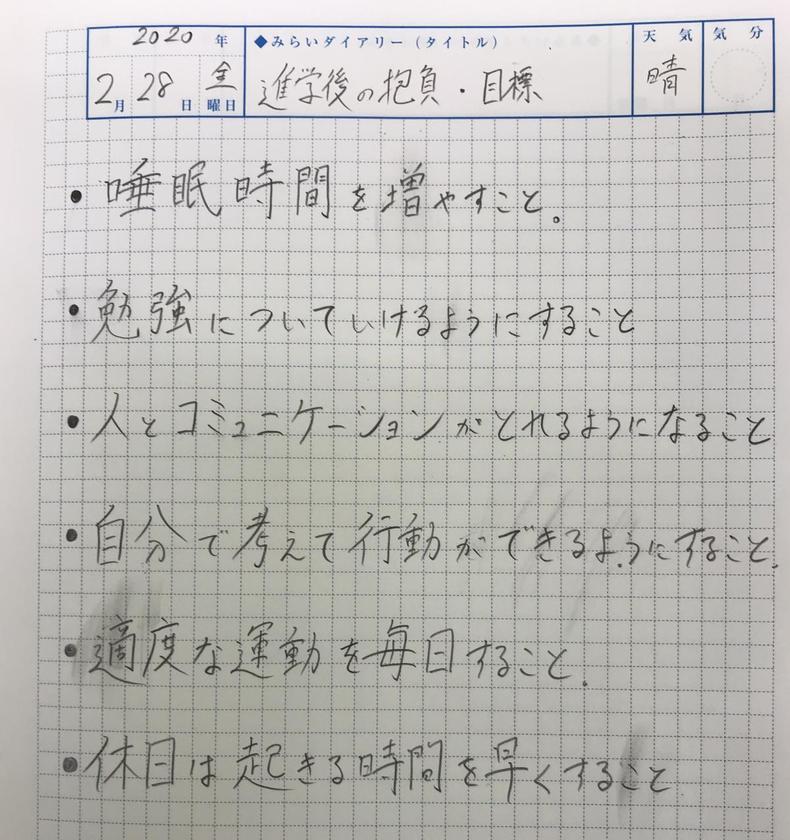 2020 年
◆みらいダイアリー（タイトル）
天 気
気 分
2月 28日 金曜日
進学後の抱負・目標
晴
・睡眠時間を増やすこと。
・勉強についていけるようにすること
・人とコミュニケーションがとれるようになること
・自分で考えて行動ができるようにすること.
・適度な運動を毎日すること.
・休日は起きる時間を早くすること